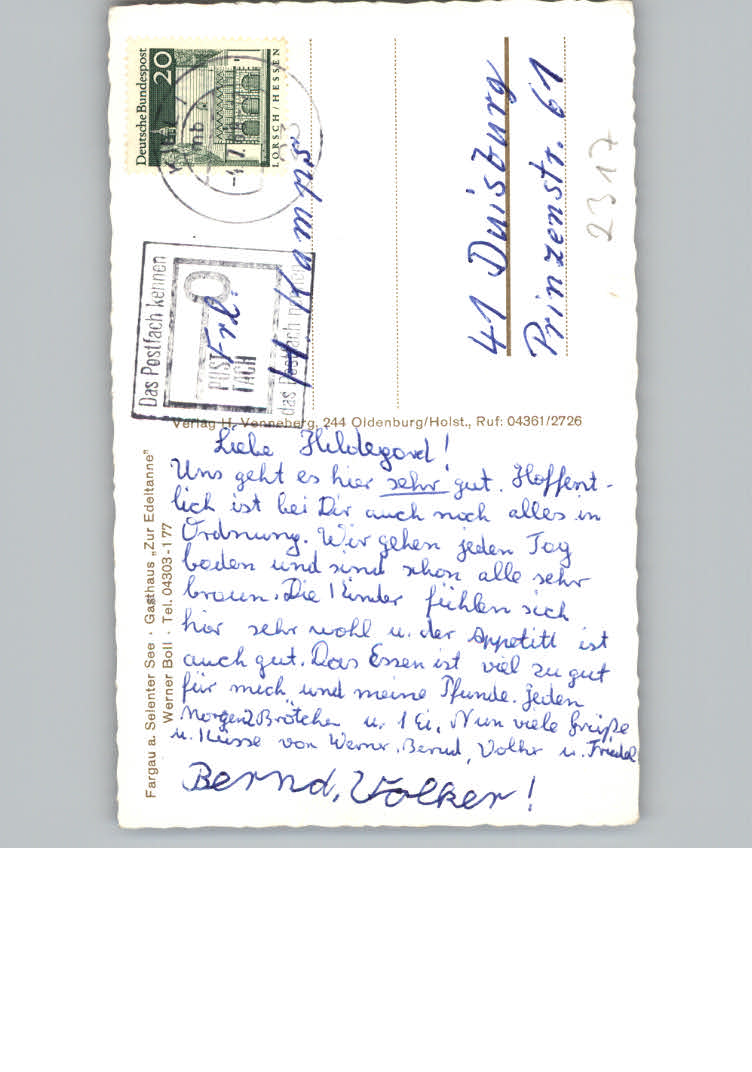 Deutsche Bundespost
20
LORSCH / HESSEN
-4.7.
23
Das Postfach kennen
POST
FACH
das Postfach
Frl.
H. Kamührs
41 Duisburg
Prinzenstr. 61
2317
Verlag H. Venneberg, 244 Oldenburg/Holst., Ruf: 04361/2726
Fargau a. Selenter See · Gasthaus „Zur Edeltanne"
Werner Boll · Tel. 04303-177
Liebe Hildegard!
Uns geht es hier sehr gut. Hoffent-
lich ist bei Dir auch noch alles in
Ordnung. Wir gehen jeden Tag
baden und sind schon alle sehr
braun. Die Kinder fühlen sich
hier sehr wohl u. der Appetitt ist
auch gut. Das Essen ist viel zu gut
für mich und meine Pfunde. Jeden
Morgen 2 Brötchen u. 1 Ei. Nun viele Grüße
u. Küsse von Werner, Bernd, Volker u. Friedel
Bernd, Volker!